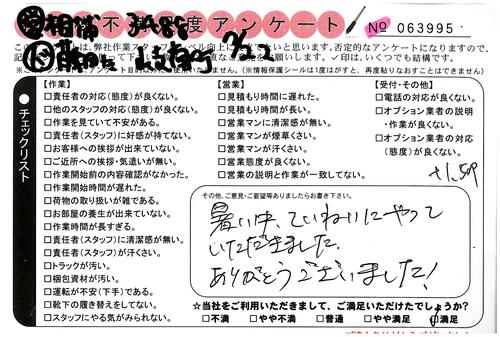 不 度アンケート
No 063995
このアンケートは、弊社作業スタッフのレベル向上
と思います。否定的なアンケートになりますので、
直な
をお願いします。✓印は、いくつでも結構です。
(※情報保護シールは1度はがすと、再度貼りなおすことはできません)
チェックリスト
【作業】
□責任者の対応(態度)が良くない。
□他のスタッフの対応(態度)が良くない。
□作業を見ていて不安がある。
□責任者(スタッフ)に好感が持てない。
□お客様への挨拶が出来ていない。
□ご近所への挨拶・気遣いが無い。
□作業開始前の内容確認がなかった。
□作業開始時間が遅れた。
□荷物の取り扱いが雑である。
□お部屋の養生が出来ていない。
□作業時間が長すぎる。
□責任者(スタッフ)に清潔感が無い。
□責任者(スタッフ)が汗くさい。
□トラックが汚い。
□梱包資材が汚い。
□運転が不安(下手)である。
□靴下の履き替えをしてない。
□スタッフにやる気がみられない。
【営業】
□見積もり時間に遅れた。
□見積もり時間が長い。
□営業マンに清潔感が無い。
□営業マンが煙草くさい。
□営業マンが汗くさい。
□営業態度が良くない。
□営業の説明と作業が一致してない。
【受付・その他】
□電話の対応が良くない。
□オプション業者の説明
・作業が良くない。
□オプション業者の対応
(態度)が良くない。
その他、ご意見・ご要望等ありましたらお書き下さい。
暑い中、ていねいにやって
いただきました。
ありがとうございました!
☆当社をご利用いただきまして、ご満足いただけたでしょうか?
□不満 □やや不満 □普通 □やや満足 ☑満足